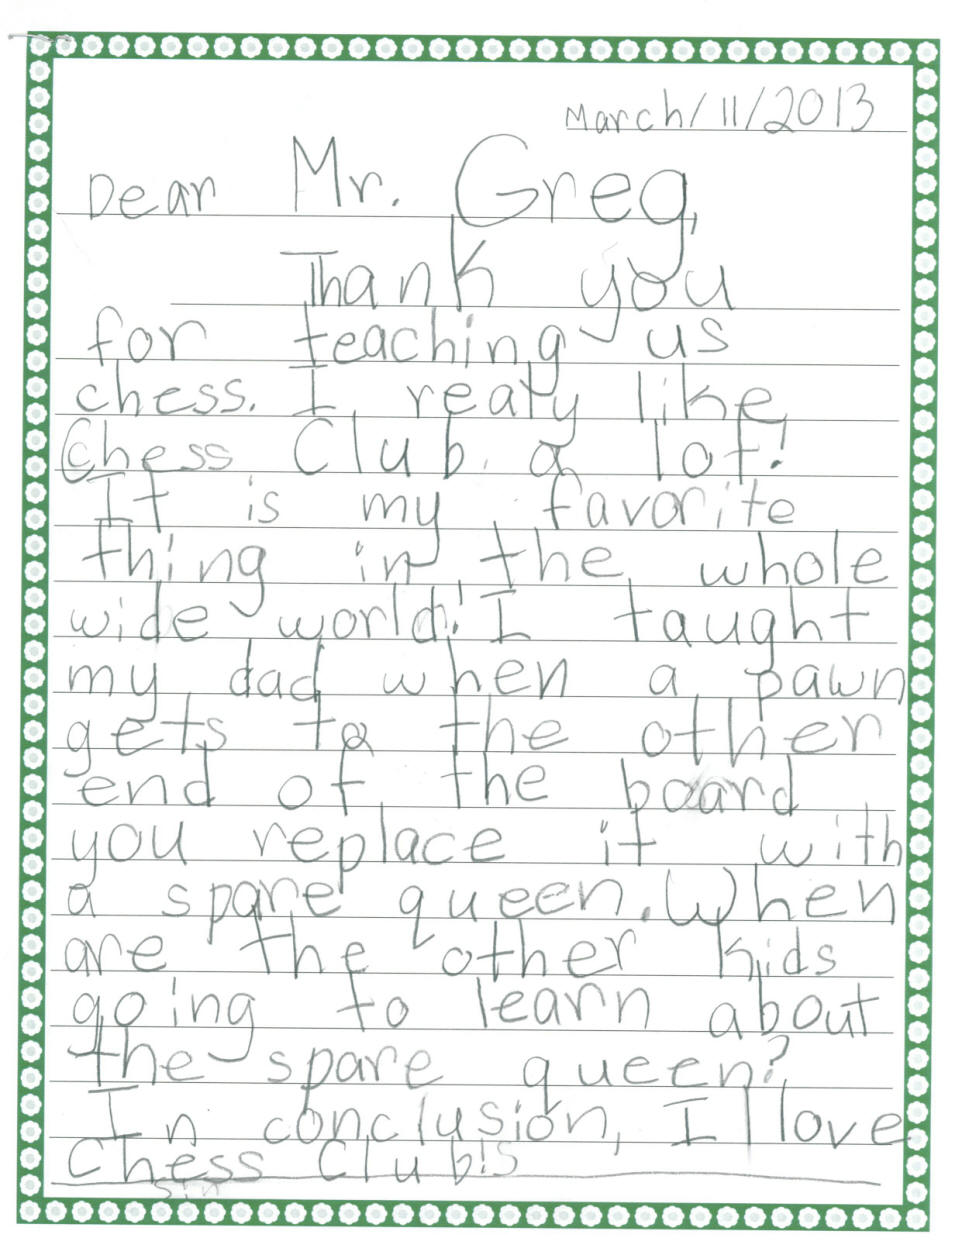 March/11/2013
Dear Mr. Greg,
Thank you
for teaching us
chess. I realy like
Chess Club a lot!
It is my favorite
thing in the whole
wide world! I taught
my dad when a pawn
gets to the other
end of the board
you replace it with
a spare queen. When
are the other kids
going to learn about
the spare queen?
In conclusion, I love
Chess Club!